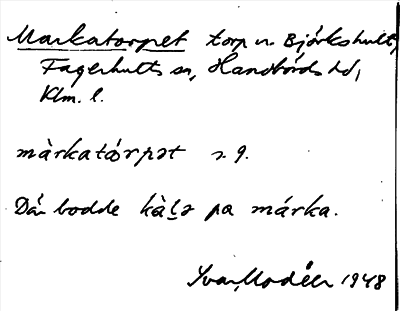 Markatorpet torp u. Björkshult,
Fagerhults sn, Handbörds hd,
Klm. l.
màrkatórpət s. g.
Där bodde kàlə på márka.
Ivar Modéer 1948